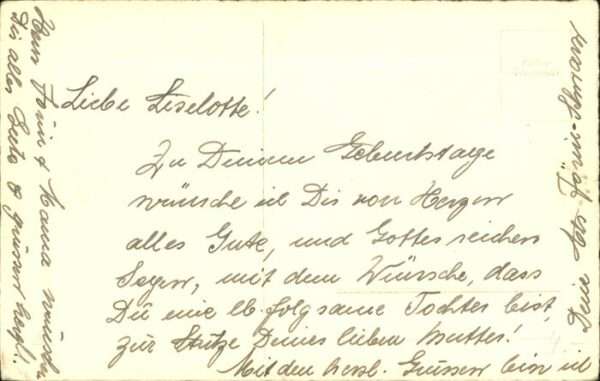 Liebe Liselotte!
Zu Deinem Geburtstage
wünsche ich Dir von Herzen
alles Gute, und Gottes reichen
Segen, mit dem Wunsche, dass
Du eine lb. folgsame Tochter bist,
zur Stütze Deiner lieben Mutter!
Mit den herzl. Grüssen bin ich
Deine
Herr & Mama wünschen
Dir alles Gute & grüssen herzl.